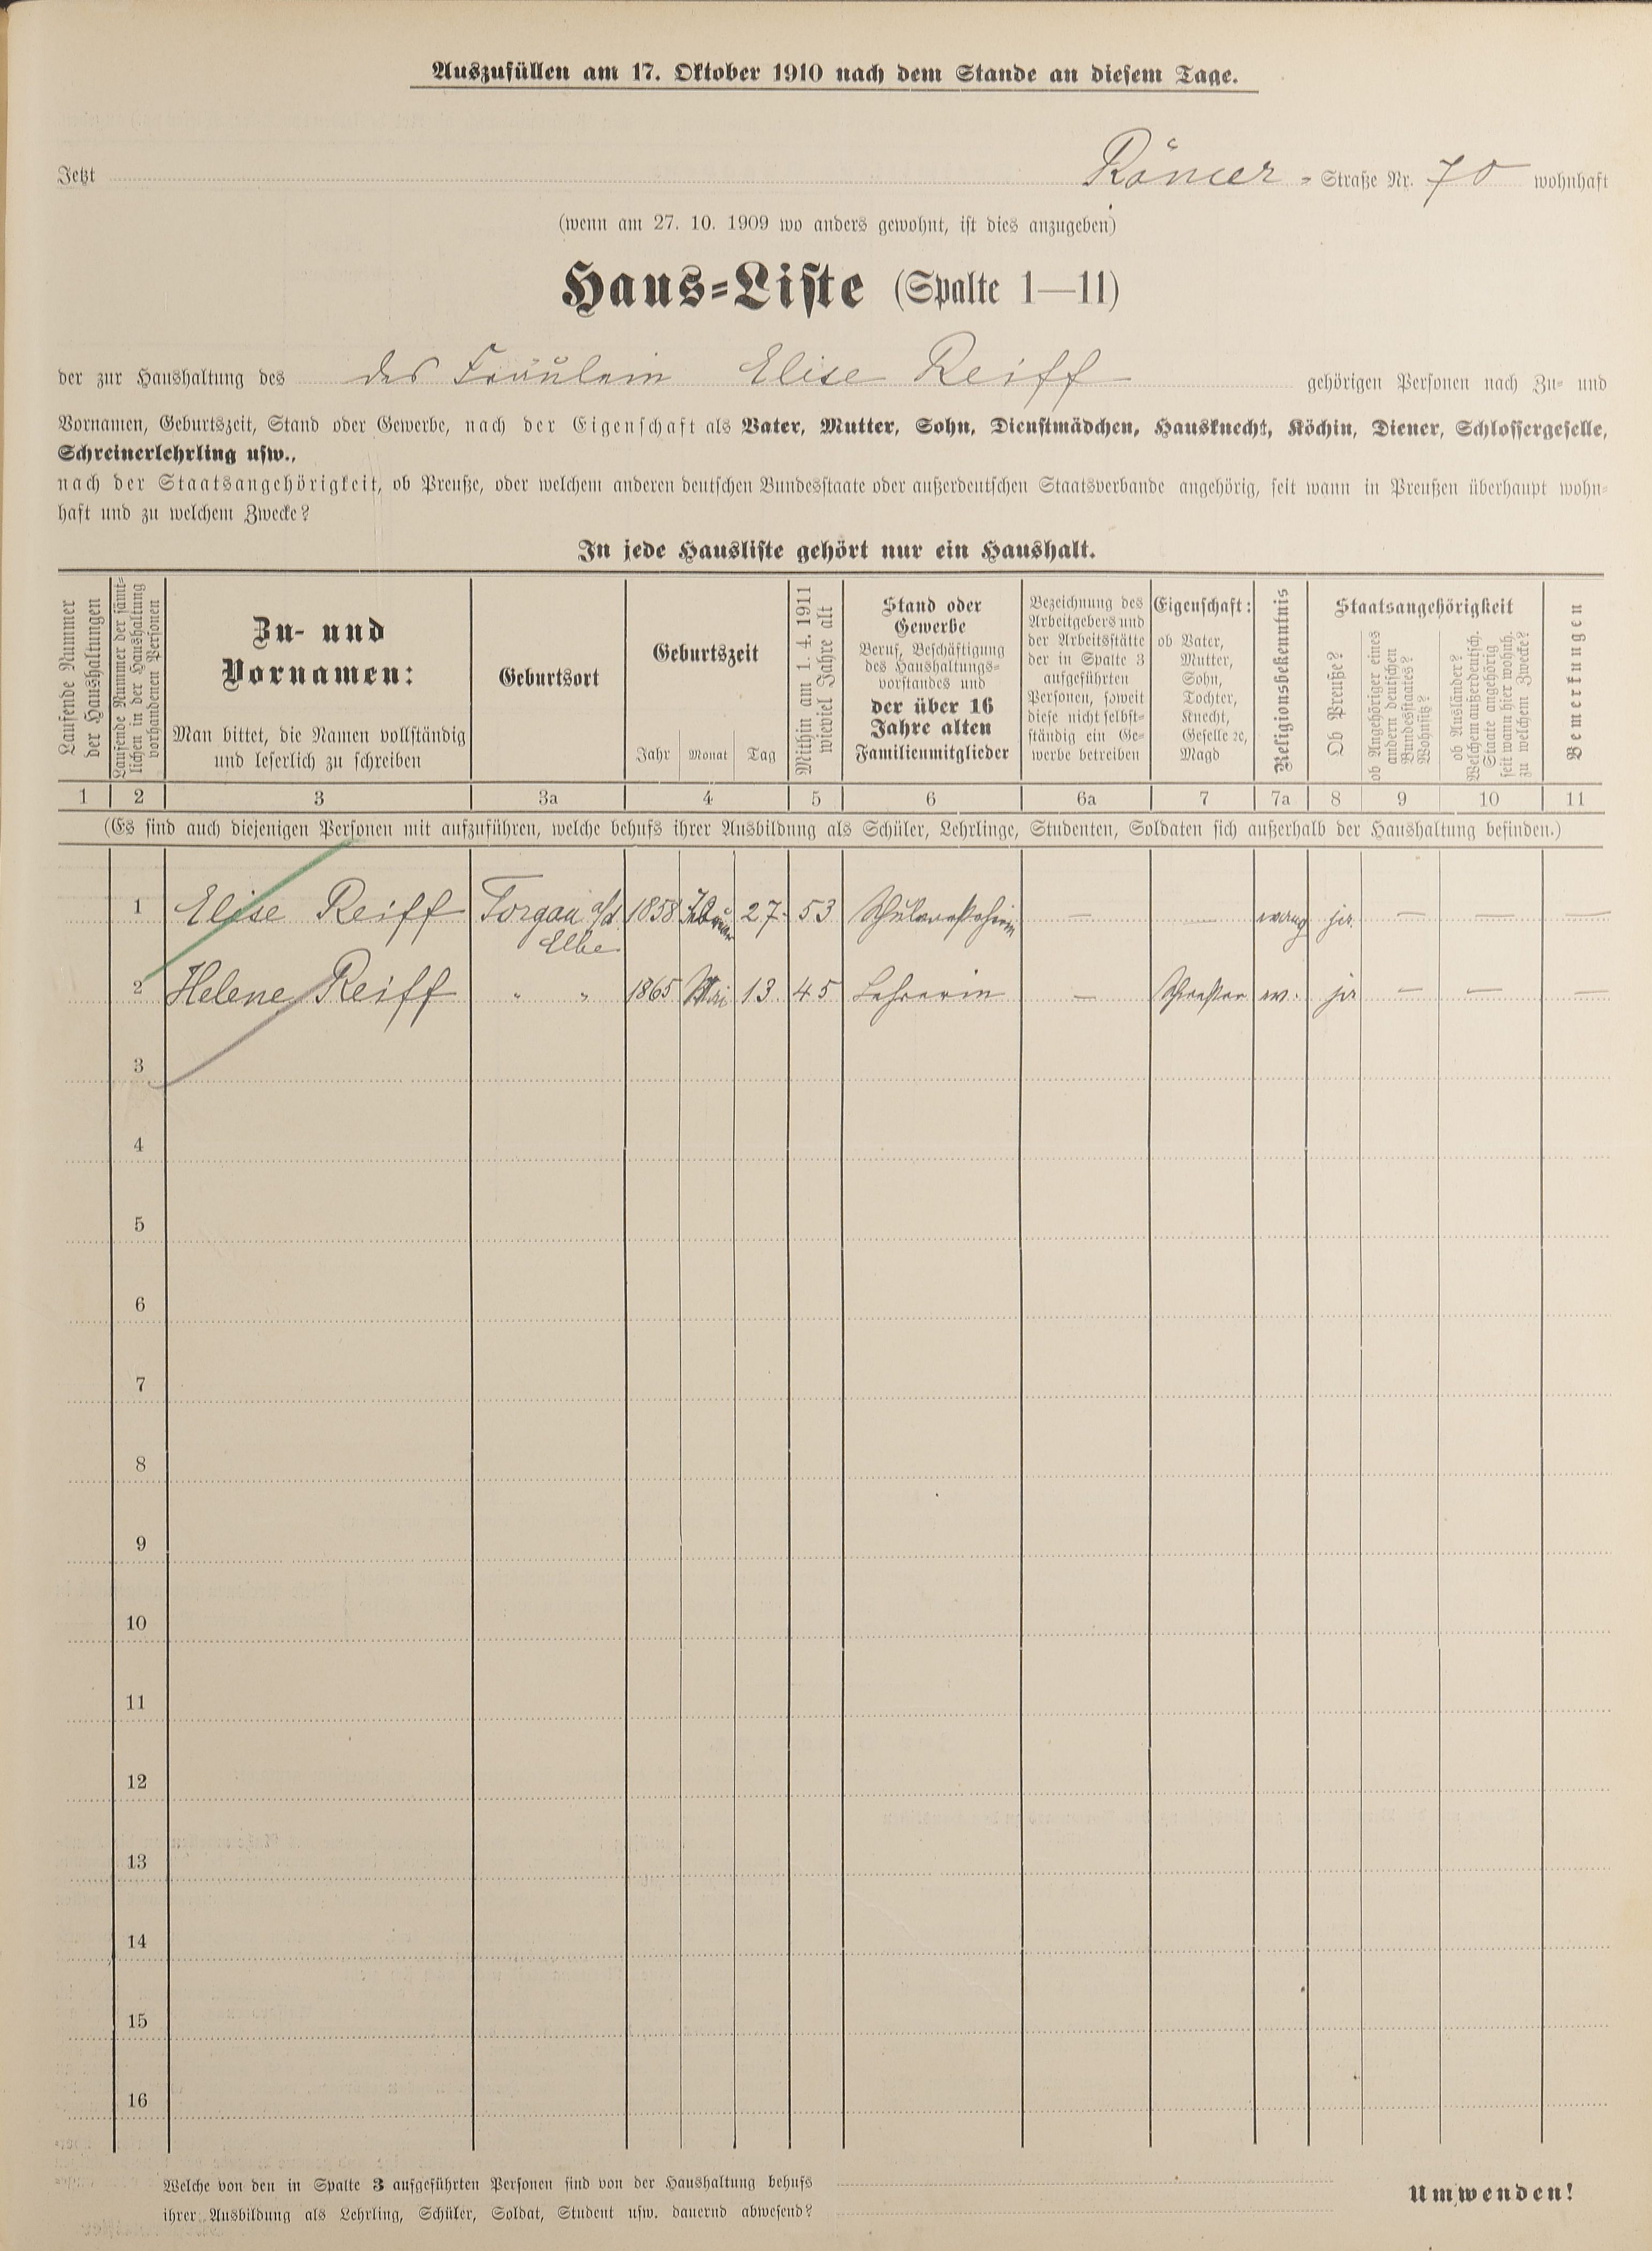 Auszufüllen am 17. Oktober 1910 nach dem Stande an diesem Tage.
Jetzt Römer - Straße Nr. 70 wohnhaft
(wenn am 27. 10. 1909 wo anders gewohnt, ist dies anzugeben)
Haus-Liste (Spalte 1—11)
der zur Haushaltung des des Fräulein Elise Reiff gehörigen Personen nach Zu- und
Vornamen, Geburtszeit, Stand oder Gewerbe, nach der Eigenschaft als Vater, Mutter, Sohn, Dienstmädchen, Hausknecht, Köchin, Diener, Schlossergeselle,
Schreinerlehrling usw.,
nach der Staatsangehörigkeit, ob Preuße, oder welchem anderen deutschen Bundesstaate oder außerdeutschen Staatsverbande angehörig, seit wann in Preußen überhaupt wohn-
haft und zu welchem Zwecke?
In jede Hausliste gehört nur ein Haushalt.
Laufende Nummer
der Haushaltungen
Laufende Nummer der sämt-
lichen in der Haushaltung
vorhandenen Personen
Zu- und
Vornamen:
Man bittet, die Namen vollständig
und leserlich zu schreiben
Geburtsort
Geburtszeit
Jahr Monat Tag
Mithin am 1. 4. 1911
wieviel Jahre alt
Stand oder
Gewerbe
Beruf, Beschäftigung
des Haushaltungs-
vorstandes und
der über 16
Jahre alten
Familienmitglieder
Bezeichnung des
Arbeitgebers und
der Arbeitsstätte
der in Spalte 3
aufgeführten
Personen, soweit
diese nicht selbst-
ständig ein Ge-
werbe betreiben
Eigenschaft:
ob Vater,
Mutter,
Sohn,
Tochter,
Knecht,
Geselle ꝛc,
Magd
Religionsbekenntnis
Staatsangehörigkeit
Ob Preuße?
ob Angehöriger eines
andern deutschen
Bundesstaates?
Wohnsitz?
ob Ausländer?
Welchem außerdeutsch.
Staate angehörig
seit wann hier wohnh.
zu welchem Zwecke?
Bemerkungen
1 2 3 3a 4 5 6 6a 7 7a 8 9 10 11
(Es sind auch diejenigen Personen mit aufzuführen, welche behufs ihrer Ausbildung als Schüler, Lehrlinge, Studenten, Soldaten sich außerhalb der Haushaltung befinden.)
1 Elise Reiff Torgau a/d. 1858 Februar 27. 53 Schulvorsteherin — — evang ja. — — —
Elbe
2 Helene Reiff " " 1865 Mai 13. 45 Lehrerin — Schwester ev. ja — — —
3
4
5
6
7
8
9
10
11
12
13
14
15
16
Welche von den in Spalte 3 aufgeführten Personen sind von der Haushaltung behufs
ihrer Ausbildung als Lehrling, Schüler, Soldat, Student usw. dauernd abwesend?
Umwenden!